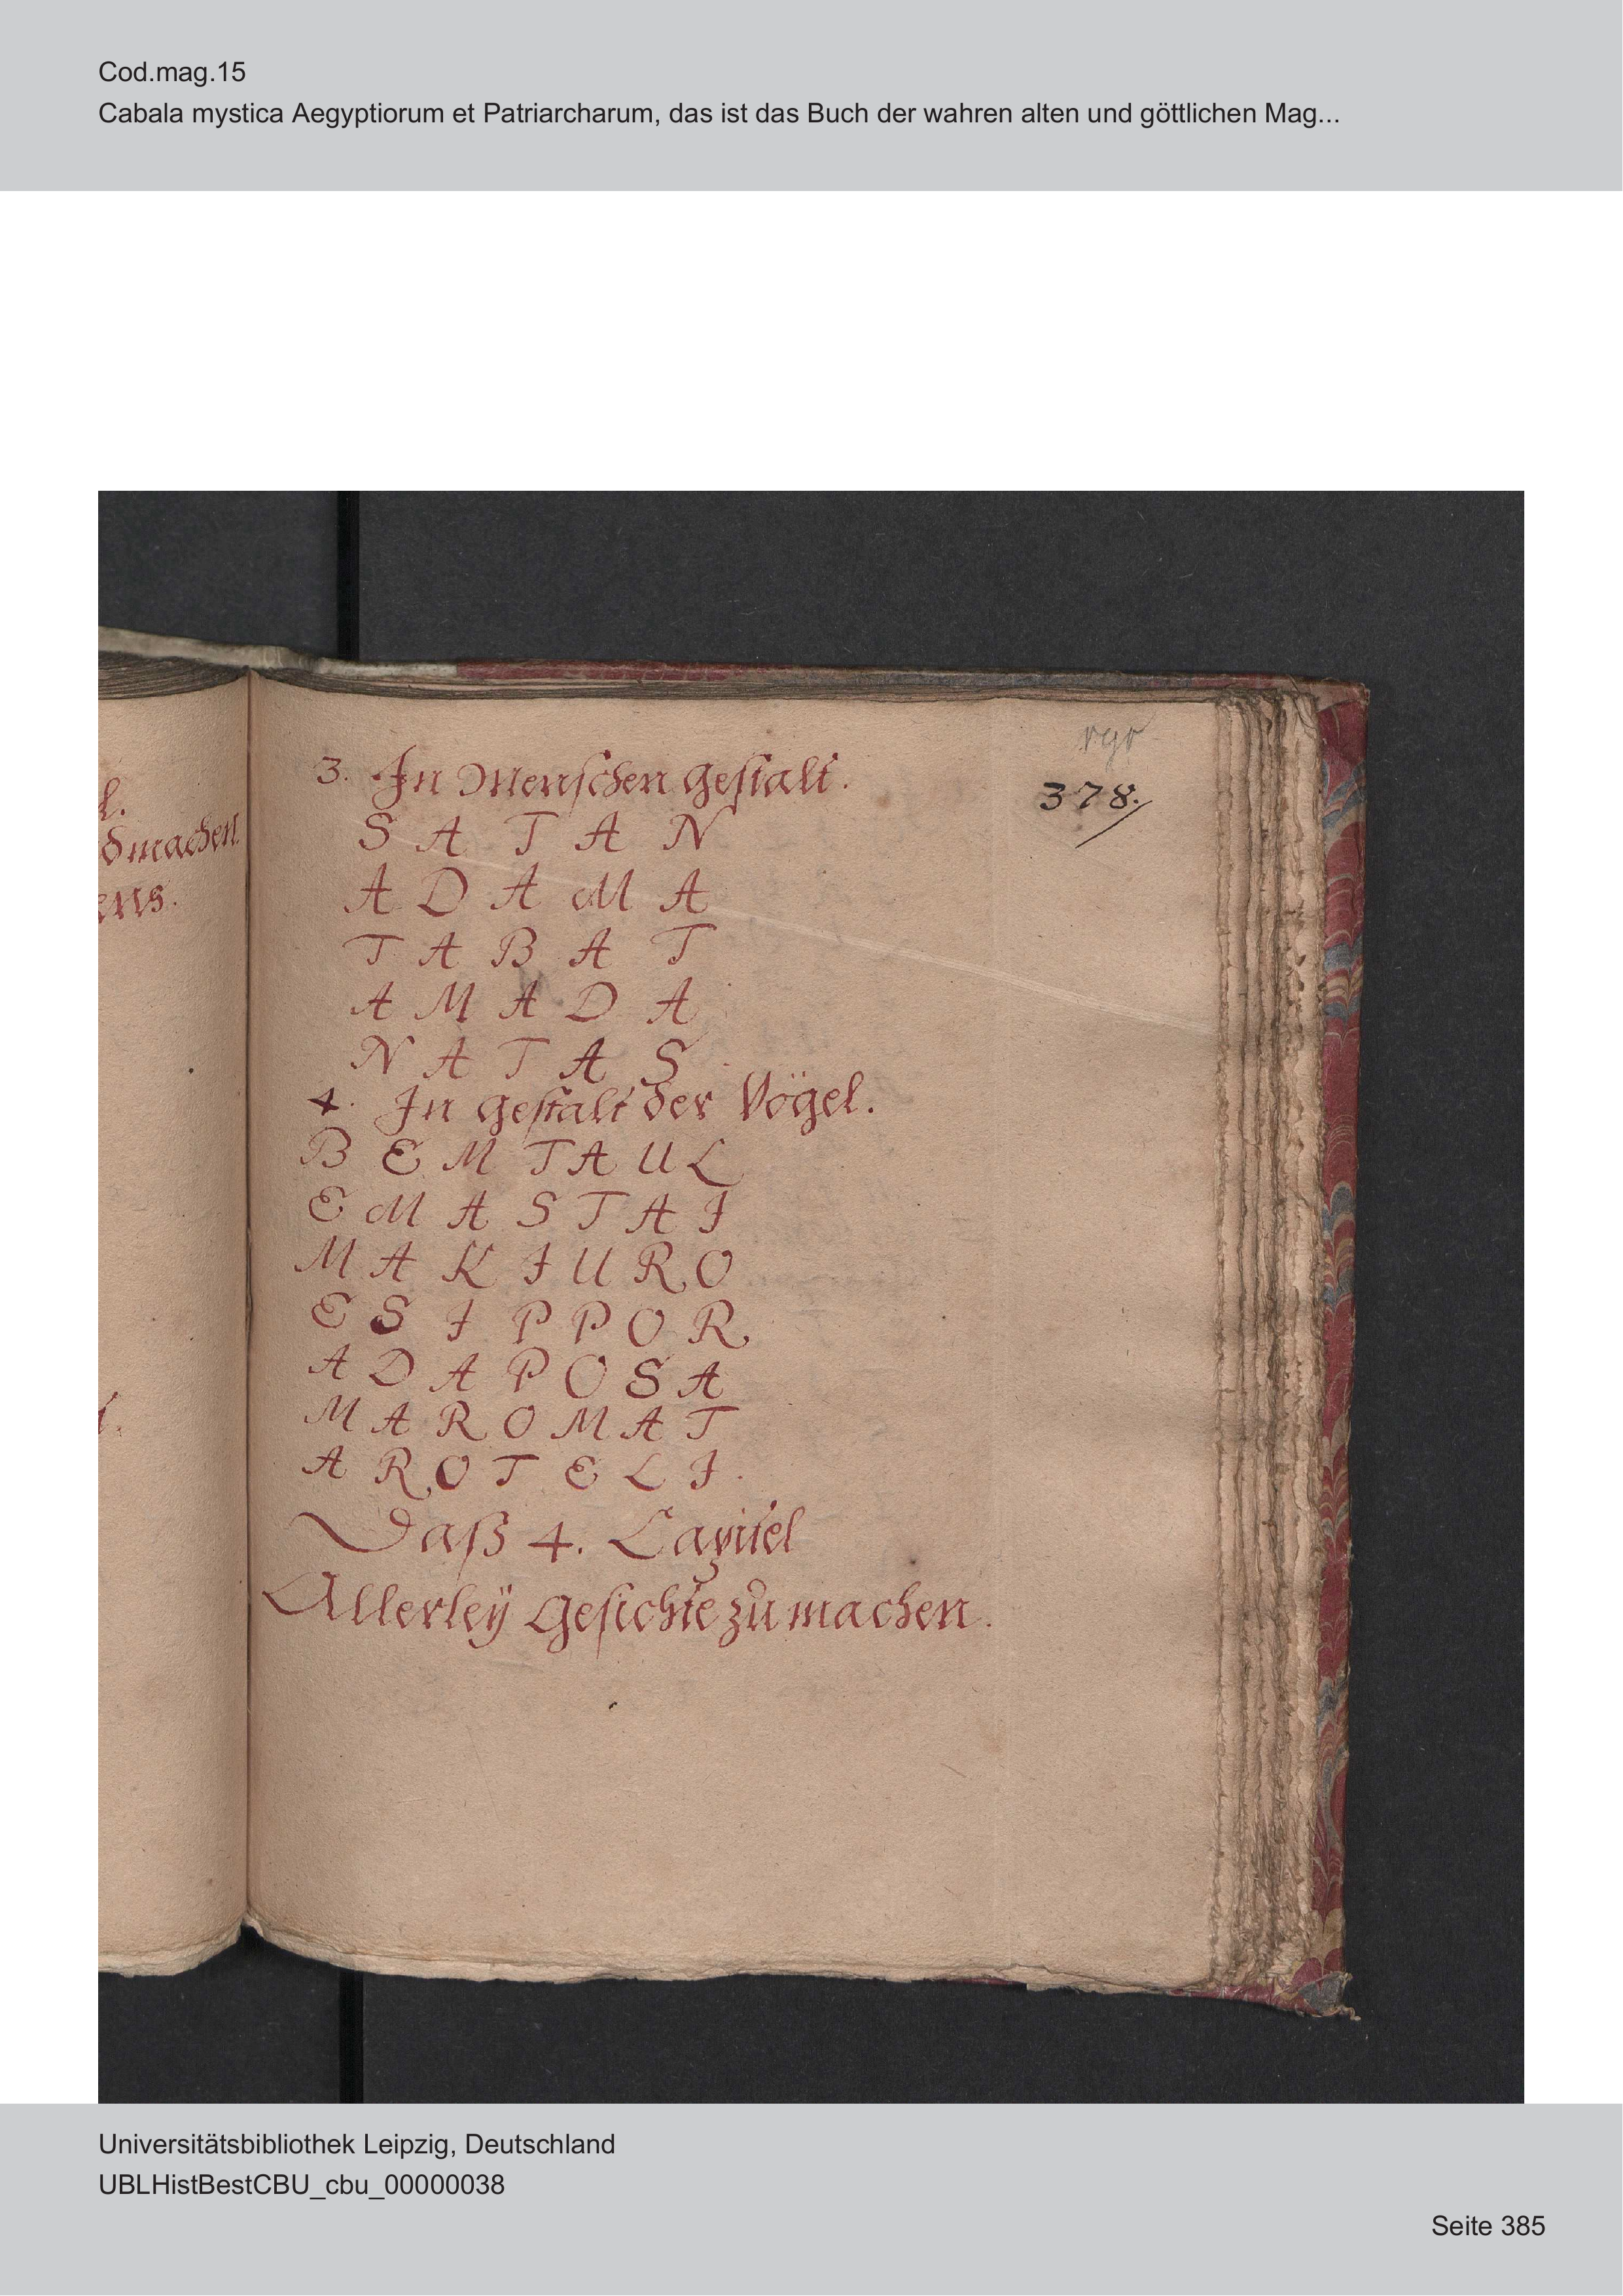 Cod.mag.15
Cabala mystica Aegyptiorum et Patriarcharum, das ist das Buch der wahren alten und göttlichen Mag...
378.
3. In Menschen gestalt.
S A T A N
A D A M A
T A B A T
A M A D A
N A T A S
4. In gestalt der Vögel.
B E M T A U L
E M A S T A I
M A K I U R O
E S I P P O R
A D A P O S A
M A R O M A T
A R O T E L I
Daß 4. Capitel
Allerleÿ Gesichte zu machen.
l.
machen
ens.
Universitätsbibliothek Leipzig, Deutschland
UBLHistBestCBU_cbu_00000038
Seite 385